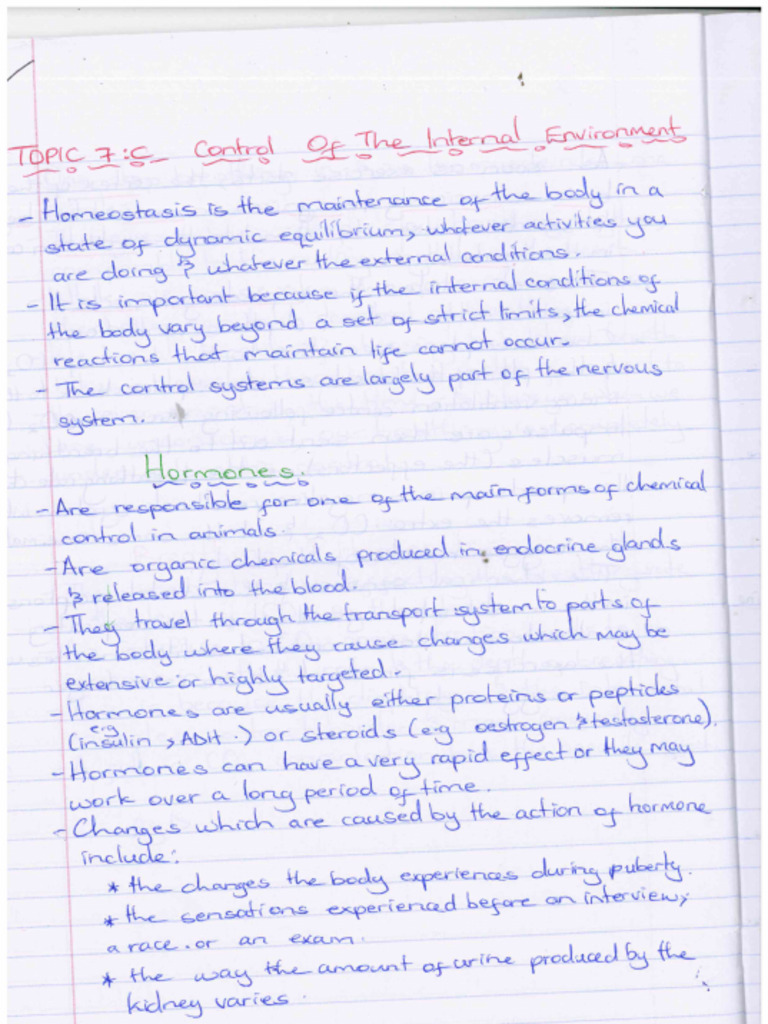 TOPIC 7:C Control Of The Internal Environment
- Homeostasis is the maintenance of the body in a
state of dynamic equilibrium, whatever activities you
are doing & whatever the external conditions.
- It is important because if the internal conditions of
the body vary beyond a set of strict limits, the chemical
reactions that maintain life cannot occur.
- The control systems are largely part of the nervous
system.
Hormones.
- Are responsible for one of the main forms of chemical
control in animals.
- Are organic chemicals produced in endocrine glands
& released into the blood.
- They travel through the transport system to parts of
the body where they cause changes which may be
extensive or highly targeted.
- Hormones are usually either proteins or peptides
(e.g insulin, ADH.) or steroids (e.g oestrogen & testasterone).
- Hormones can have a very rapid effect or they may
work over a long period of time.
- Changes which are caused by the action of hormone
include:
* the changes the body experiences during puberty.
* the sensations experienced before an interview,
a race. or an exam.
* the way the amount of urine produced by the
kidney varies.